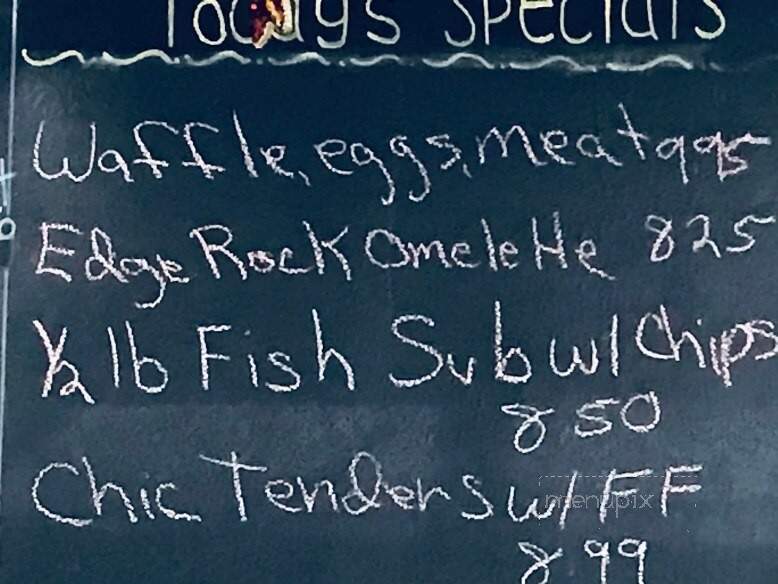 Todays Specials
Waffle, eggs, meat 995
Edge Rock Omelette 825
1/2 lb Fish Sub w/ Chips
850
Chic Tenders w/ FF
menupix
899